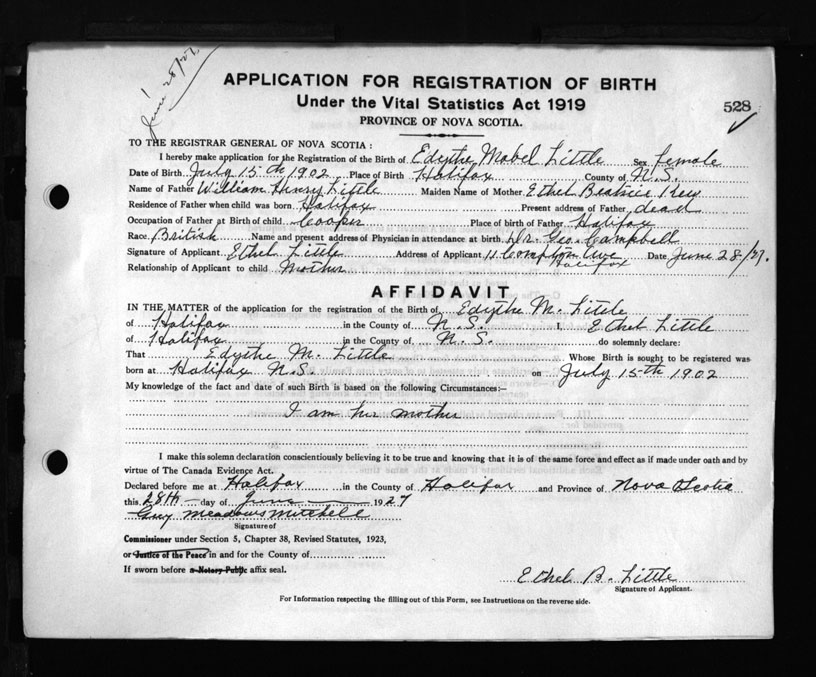 June 28/27
APPLICATION FOR REGISTRATION OF BIRTH
Under the Vital Statistics Act 1919
528
PROVINCE OF NOVA SCOTIA.
TO THE REGISTRAR GENERAL OF NOVA SCOTIA:
I hereby make application for the Registration of the Birth of Edythe Mabel Little Sex female
Date of Birth July 15th 1902 Place of Birth Halifax County of N.S.
Name of Father William Henry Little Maiden Name of Mother Ethel Beatrice Key
Residence of Father when child was born Halifax Present address of Father dead
Occupation of Father at Birth of child Cooper Place of birth of Father Halifax
Race British Name and present address of Physician in attendance at birth Dr. Geo. Campbell
Signature of Applicant Ethel Little Address of Applicant 11 Compton Ave Halifax Date June 28/27.
Relationship of Applicant to child Mother
AFFIDAVIT
IN THE MATTER of the application for the registration of the Birth of Edythe M. Little
of Halifax in the County of N.S. I, Ethel Little
of Halifax in the County of N.S. do solemnly declare:
That Edythe M. Little Whose Birth is sought to be registered was
born at Halifax N.S. on July 15th 1902
My knowledge of the fact and date of such Birth is based on the following Circumstances:—
I am her mother
I make this solemn declaration conscientiously believing it to be true and knowing that it is of the same force and effect as if made under oath and by
virtue of The Canada Evidence Act.
Declared before me at Halifax in the County of Halifax and Province of Nova Scotia
this 28th day of June 1927
Guy Meadows Mitchell
Signature of
Commissioner under Section 5, Chapter 38, Revised Statutes, 1923,
or Justice of the Peace in and for the County of
If sworn before a Notary Public affix seal.
Ethel B. Little
Signature of Applicant.
For Information respecting the filling out of this Form, see Instructions on the reverse side.